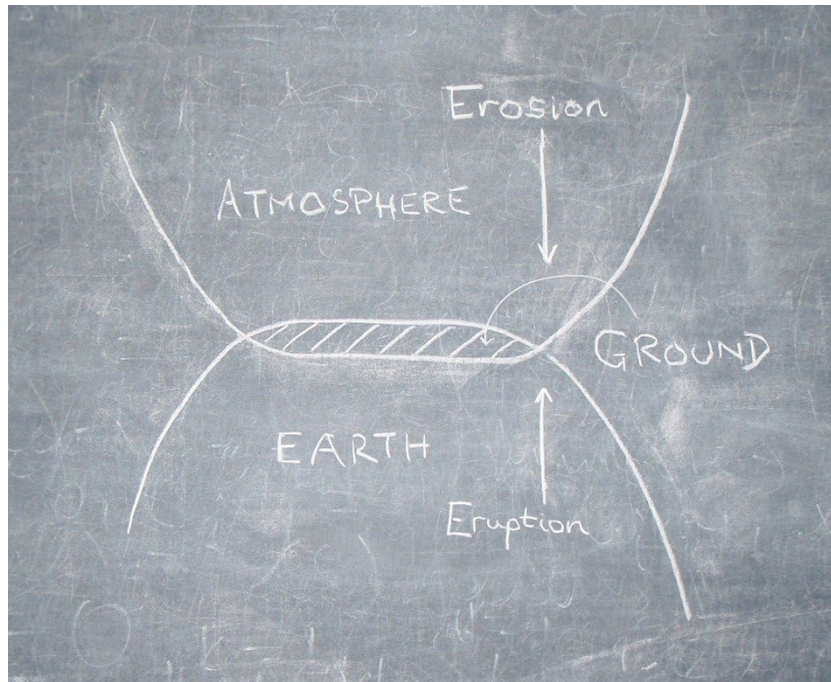 Erosion
ATMOSPHERE
GROUND
EARTH
Eruption